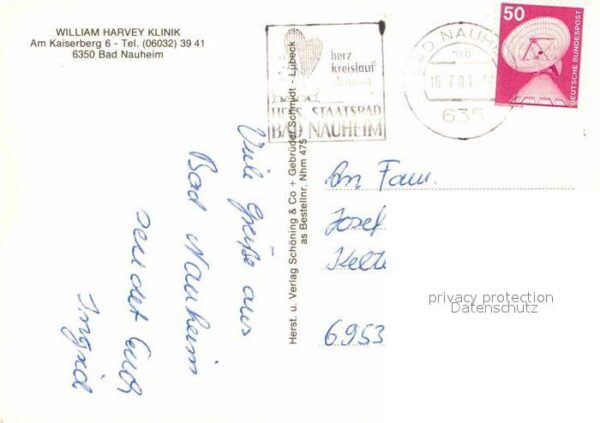 WILLIAM HARVEY KLINIK
Am Kaiserberg 6 - Tel. (06032) 39 41
6350 Bad Nauheim
herz
kreislauf
HESS. STAATSBAD
BAD NAUHEIM
BAD NAUHEIM
635
50
DEUTSCHE BUNDESPOST
Viele Grüße aus
Bad Nauheim
sendet Euch
Ingrid
Herst. u. Verlag Schöning & Co + Gebrüder Schmidt - Lübeck
as Bestellnr. Nhm 475
An Fam.
Josef
6953
privacy protection
Datenschutz